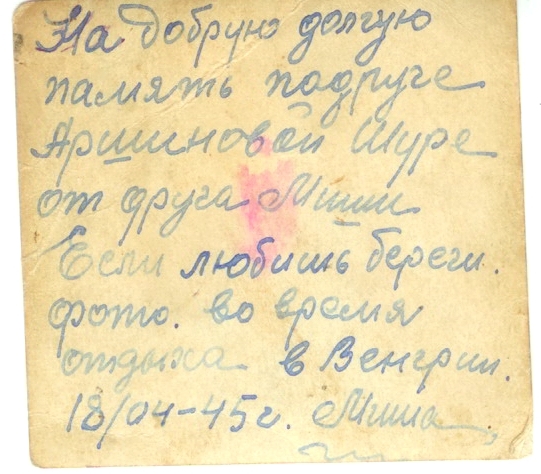 На добрую долгую
память подруге
Аршиновой Шуре
от друга Миши
Если любишь береги.
фото. во время
отдыха в Венгрии.
18/04-45г. Миша